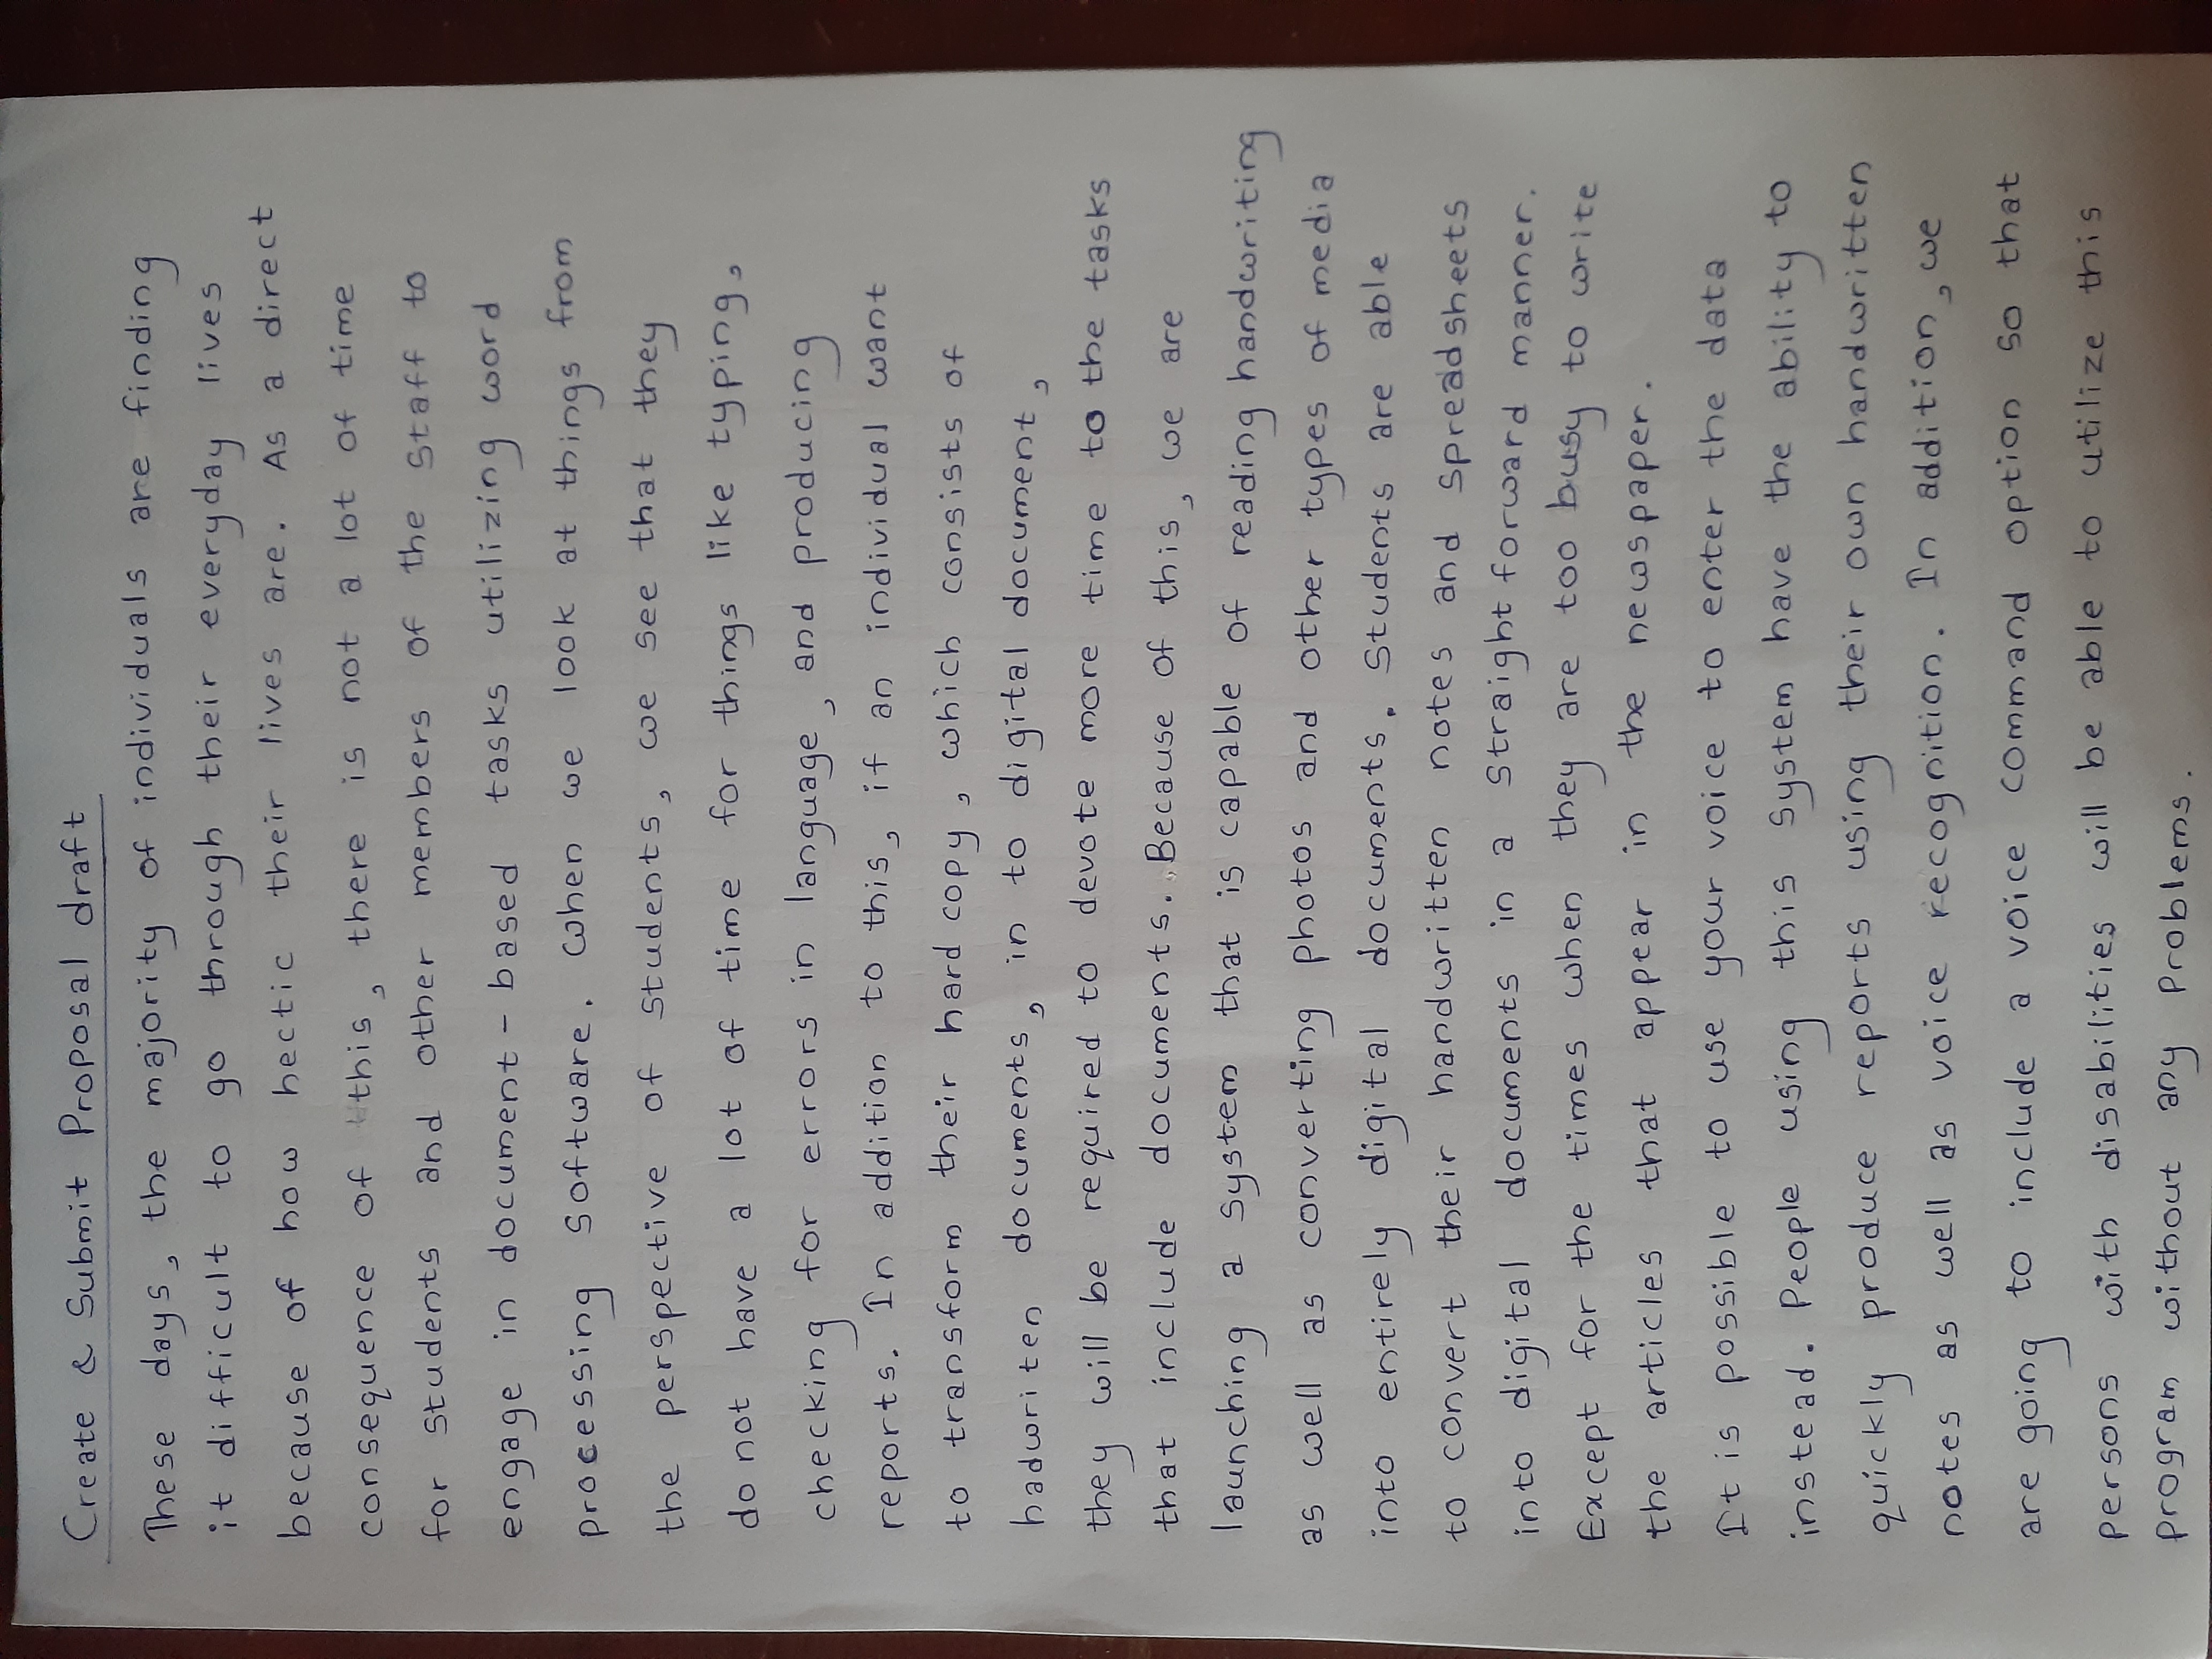 Create & Submit Proposal draft
These days, the majority of individuals are finding
it difficult to go through their everyday lives
because of how hectic their lives are. As a direct
consequence of this, there is not a lot of time
for students and other members of the staff to
engage in document-based tasks utilizing word
processing software. When we look at things from
the perspective of students, we see that they
do not have a lot of time for things like typing,
checking for errors in language, and producing
reports. In addition to this, if an individual want
to transform their hard copy, which consists of
hadwriten documents, in to digital document,
they will be required to devote more time to the tasks
that include documents. Because of this, we are
launching a system that is capable of reading handwriting
as well as converting photos and other types of media
into entirely digital documents. Students are able
to convert their handwritten notes and spreadsheets
into digital documents in a straight forward manner.
Except for the times when they are too busy to write
the articles that appear in the newspaper.
It is possible to use your voice to enter the data
instead. People using this system have the ability to
quickly produce reports using their own handwritten
notes as well as voice recognition. In addition, we
are going to include a voice command option so that
persons with disabilities will be able to utilize this
program without any problems.